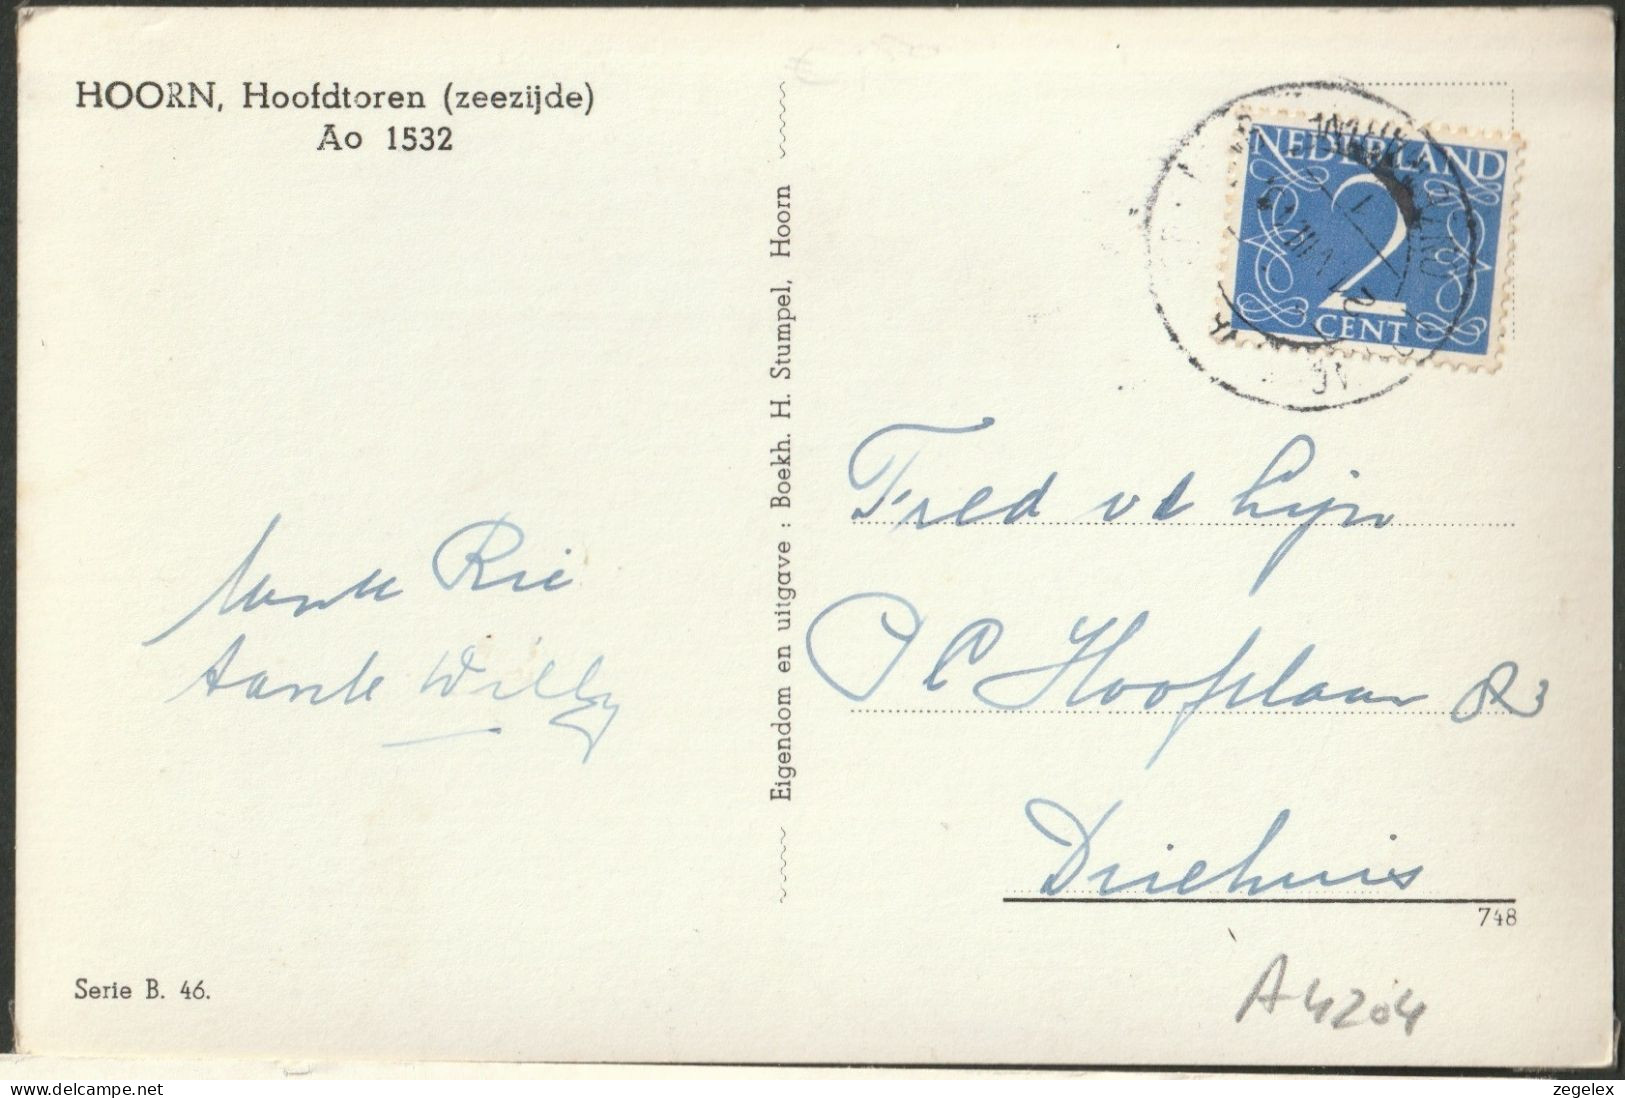 HOORN, Hoofdtoren (zeezijde)
Ao 1532
Tante Rie
tante Willy
Serie B. 46.
Eigendom en uitgave : Boekh. H. Stumpel, Hoorn
NEDERLAND
2
CENT
Fred vd Lijn
P C Hooftlaan 83
Driehuis
748
A4204
delcampe.net
zegelex